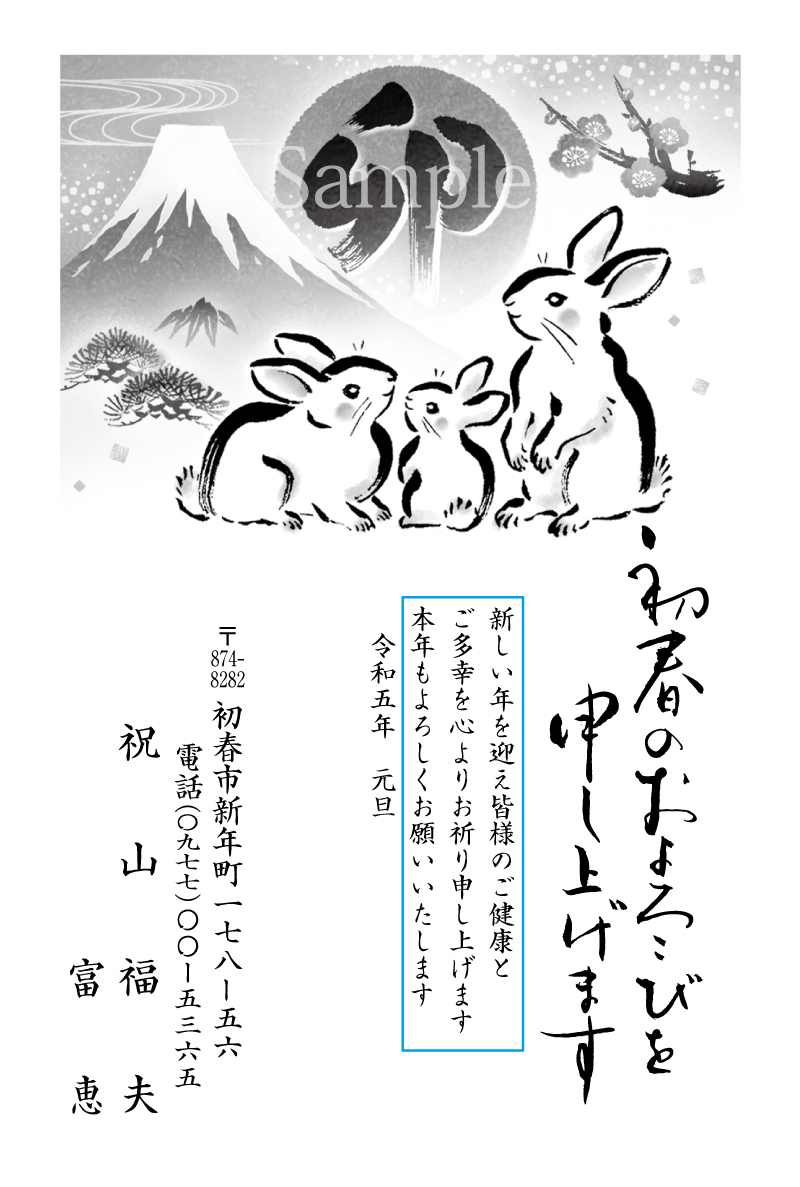 卯
Sample
初春のおよろこびを
申し上げます
新しい年を迎え皆様のご健康と
ご多幸を心よりお祈り申し上げます
本年もよろしくお願いいたします
令和五年 元旦
〒874-8282 初春市新年町一七八ー五六
電話(〇九七七)〇〇ー五三六五
祝山福夫
富恵